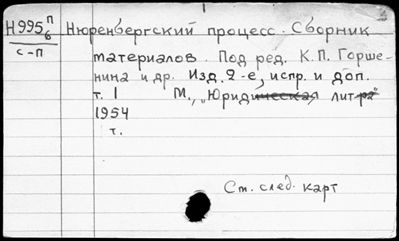 Н995 п Нюренбергский процесс. Сборник
6
с-п материалов. Под ред. К.П. Горше-
нина и др. Изд. 2-е, испр. и доп.
т. 1 М., „Юридическая лит-ра"
1954
т.
Ст. след. карт